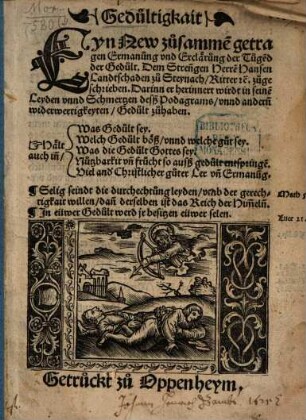 Gedültigkait
Eyn New zůsammē getra
gen Ermanũng vnd Erclärũng der Tůgēd
der Gedült. Dem Streñgen Herrē Hansen
Landtschaden zů Steynach, Ritter ꝛč. zůge
schrieben. Darinn er herinnert wirdt in seinē
Leyden vnnd Schmertzen deß Podagrams, vnnd anderñ
widerwertigkeyten, Gedült zůhaben.
Was Gedült sey.
Welch Gedült böß, vnnd welche gůt sey.
Was die Gedült Gottes sey.
Nützbarkit vñ frücht so auß gedült entspringē.
Viel and Christlicher gůter Ler vñ Ermanũg.
Helt
auch in
Selig seindt die durchechtũng leyden, vmb der gerech-
tigkait willen, dañ derselben ist das Reich der Hym̃eln.
Math 5
In eüwer Gedült werd je besitzen eüwer selen.
Luce 21
Getrückt zů Oppenheym,